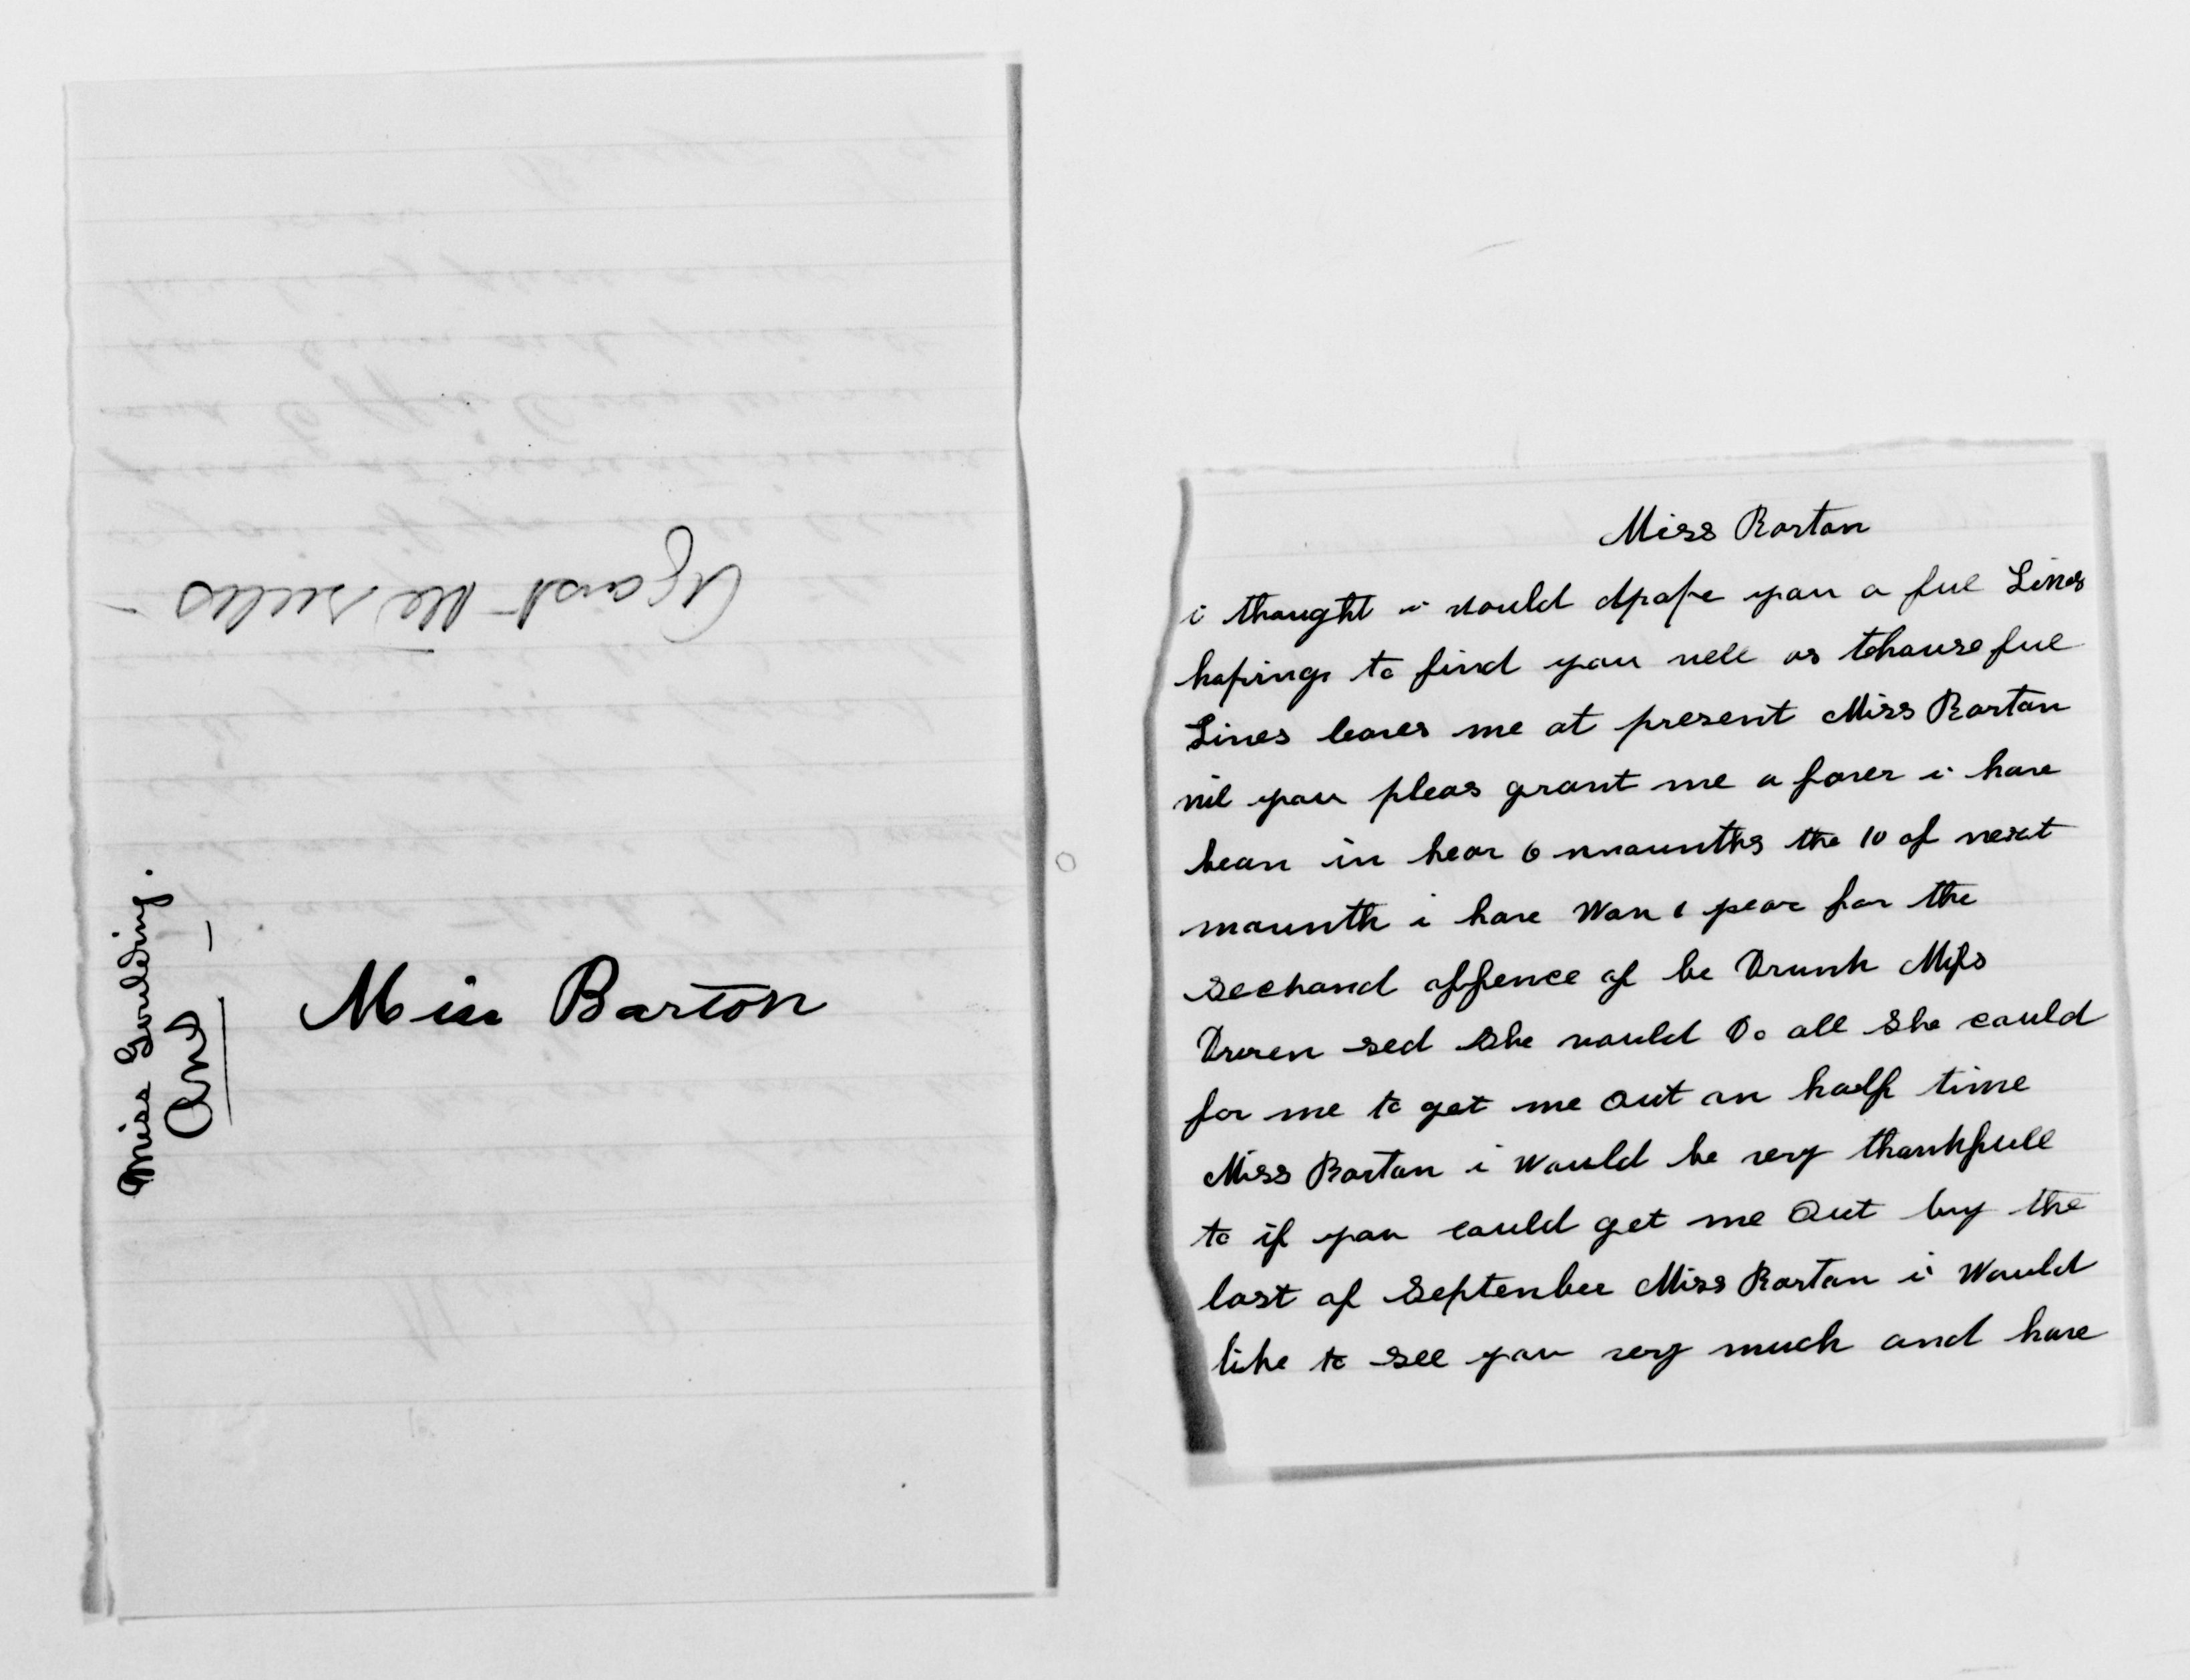 Against the rules -
Miss Goulding.
Ans -
Miss Barton
Miss Barton
i thought i would drape you a fue Lines
hoping to find you well as thause fue
Lines leaves me at present Miss Barton
wil you pleas grant me a faver i have
bean in hear 6 maunths the 10 of next
maunth i have Wan 1 year for the
sechand offence of be Drunk Miss
sed she would Do all she could
for me to get me out on half time
Miss Barton i would be very thankfull
to if you could get me Out by the
last of September Miss Barton i Would
like to see you very much and have